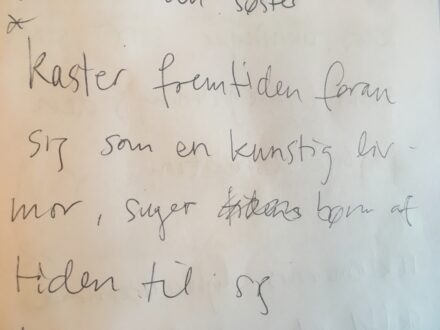 søster
*
kaster fremtiden foran
sig som en kunstig liv-
mor, suger børn af
tiden til sig